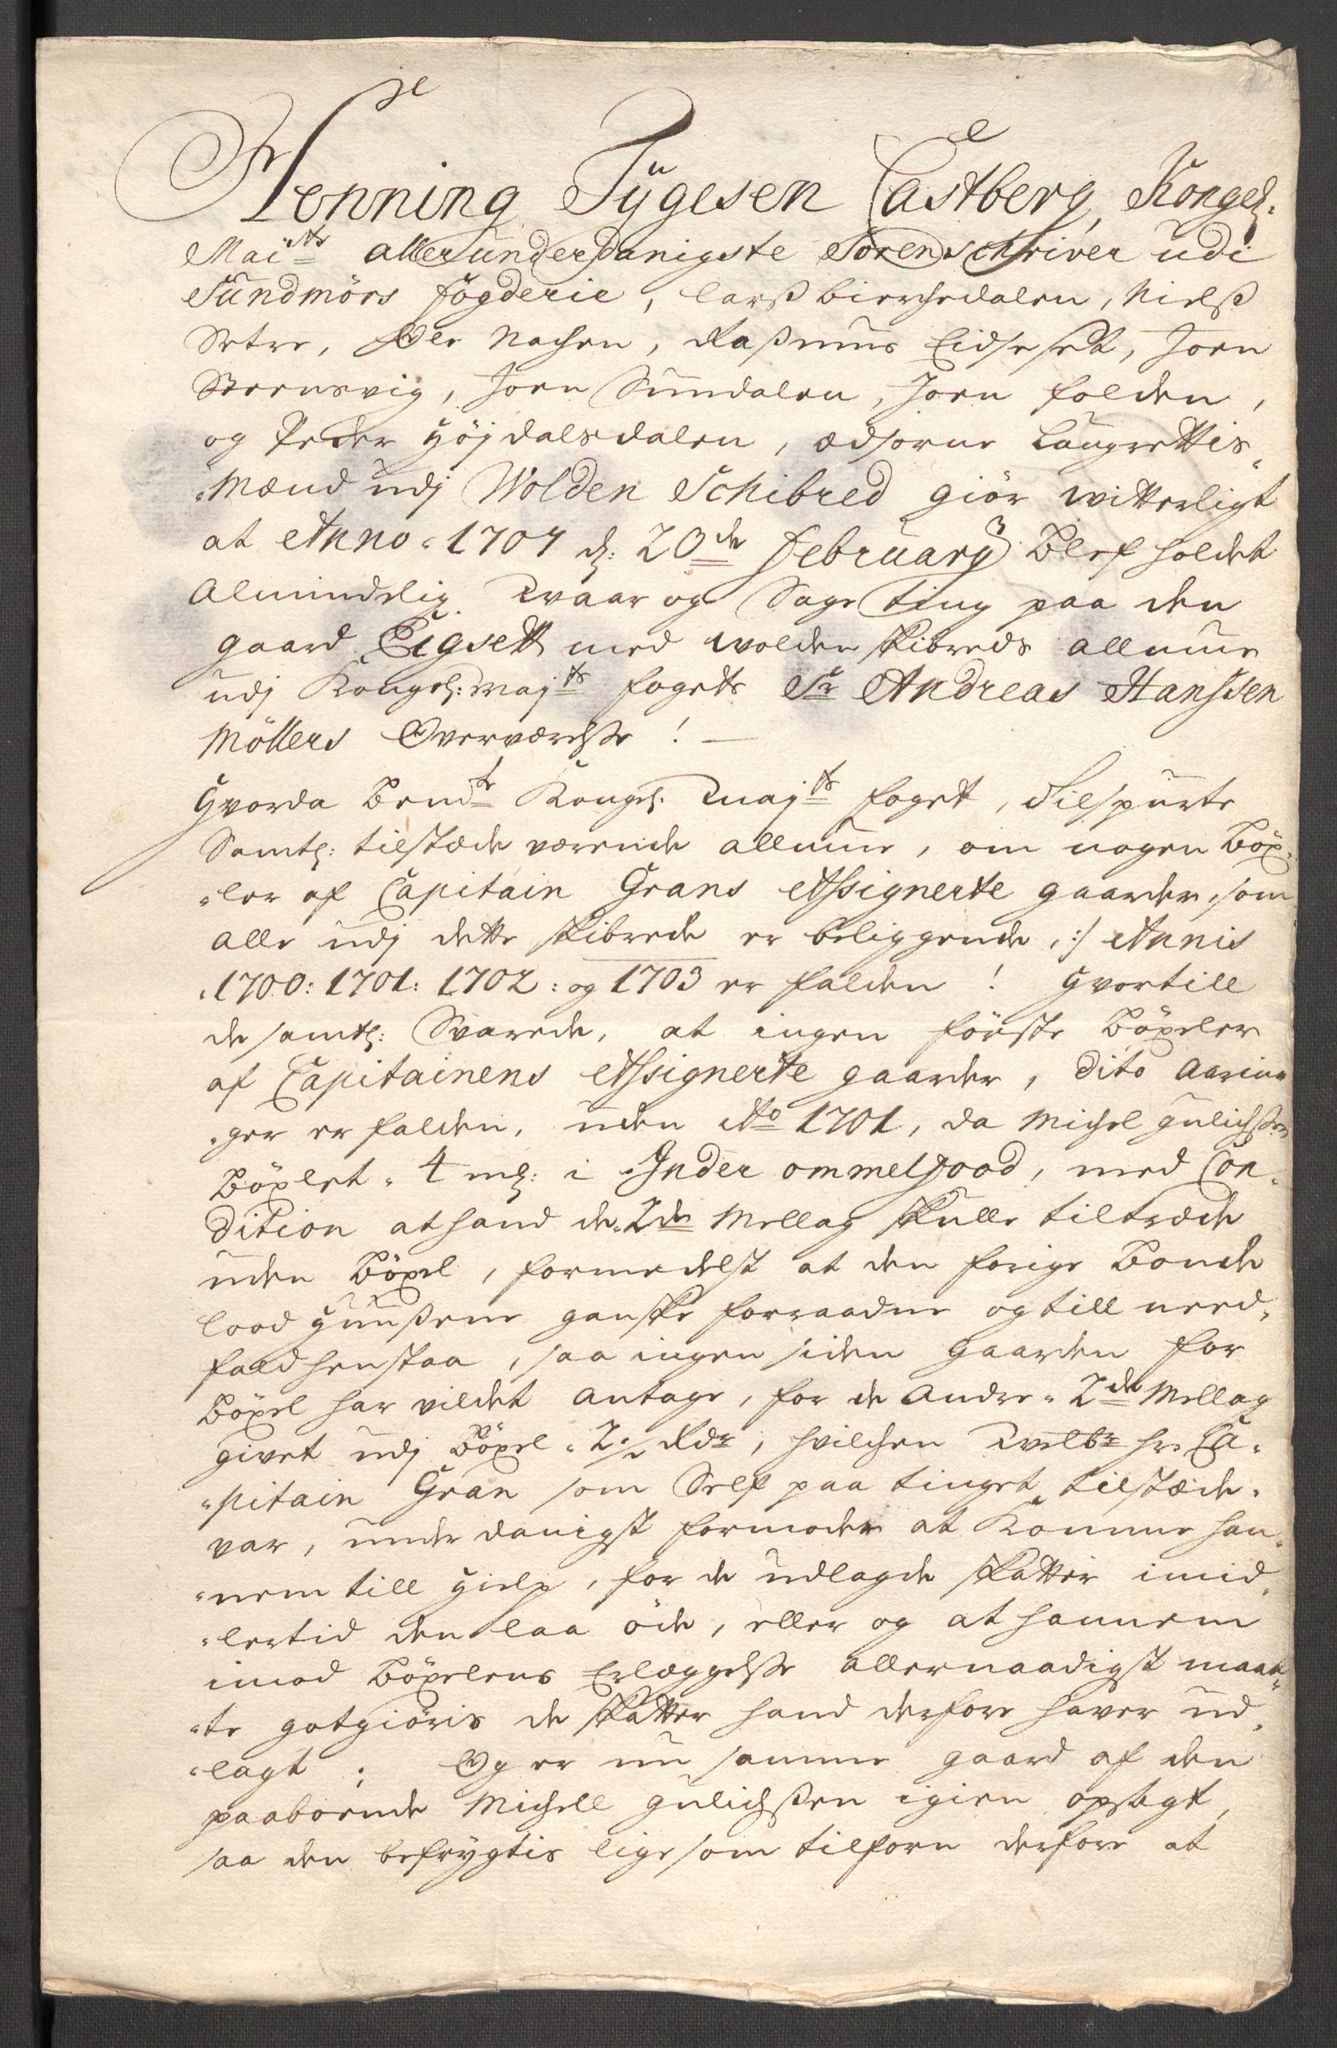 Henning Tÿgesen Castberg, Kongel:
Mai:ts allerunderdanigste Sorenschriver udi
Sundmörs fogderie, Larß bierchedalen, Nielß
Setre, Ole Nachen, Raßmus Eidseset, Joen
Steensvig, Joen Sundalen, Joen folden,
og Peder Höydalsdalen, Edsorne Laugrettis-
Mænd udj Wolden Schibred giör witterligt
at Anno 1704 d: 20de February Blef holdet
Almindelig Waar og Sage ting paa den
gaard Eigsett med wolden skibreds Almue
udj Kongel: Maj:ts fogets Sr Andreas Hanssen
Möllers Overværelsse! —
Hvorda bemte Kongel: Maj:ts foget, tilspurte
Samtl: tilstæde værende allmue, om nogen Böx-
ler af Capitain Grans Assignerte gaarder, som
alle udj dette skibrede er beliggende, :/ Annis
1700: 1701: 1702: og 1703 er falden! Hvortill
de samtl: Svarede, at ingen förste Böxeler
af Capitainens Assignerte gaarder, dito Aarin-
ger er falden, uden Ao 1701, da Michel Gulichß:
Böxlet 4 ml: i Inder ommelfood, med Con-
dition at hand de 2de Mellag skulle tiltræde
uden Böxel, formedelst at den forige Bonde
lood Huußene ganske forraadne og till need-
fald henstaa, saa ingen siden gaarden for
Böxel har vildet antage, for de andre 2de Mellag
givet udj Böxel 2 Rdr, hvilchen Welbr hr Ca-
pitain Gran som Self paa tinget tilstæde
var, underdanigst formoder at komme han-
nem till Hielp, for de udlagde skatter imid-
lertid den laa öde, eller og at hannem
imod Böxelens Erlæggelsse allernaadigst maat-
te gotgiöris de skatter hand derfore haver ud-
lagt; Og er nu samme gaard af den
paaboende Michell Gulichßen igien opsagt,
saa den befrygtis lige som tilforn derfore at